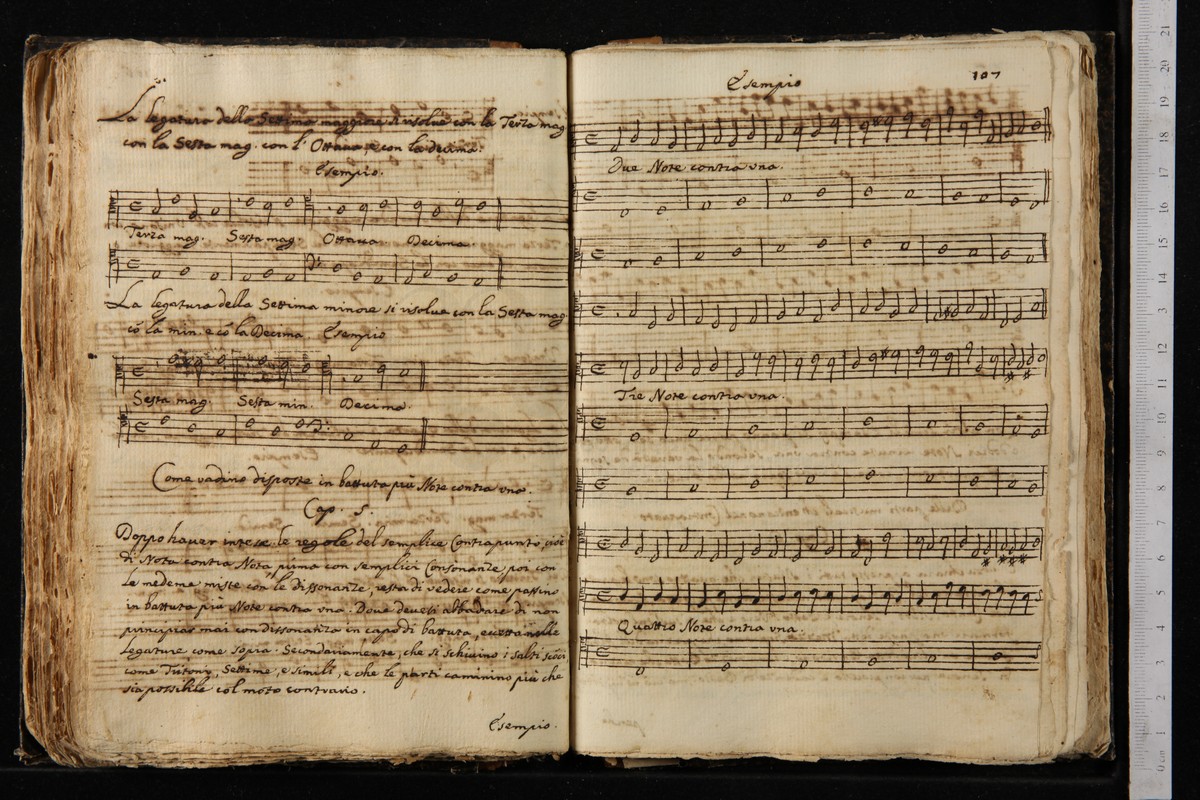 La legatura della Settima maggiore si risolve con la Terza mag.
con la Sesta mag. con l'Ottava, e con la decima.
Esempio.
Terza mag. Sesta mag. Ottava Decima.
La legatura della Settima minore si risolve con la Sesta mag.
cõ la min. e cõ la Decima. Esempio
Sesta mag. Sesta min. Decima.
Come vadino disposte in battuta più Note contra una.
Cap. 5.
Doppo haver intese le regole del semplice Contrapunto, cioè
di Nota contra Nota prima con semplici Consonanze poi con
le medeme miste con le dissonanze, resta di vedere come passino
in battuta più Note contra una. Dove devesi abbadare di non
principiar mai con dissonanza in capo di battuta, eccettu
legature come sopra. Secondariamente, che si schivino i salti
come Tritoni, Settime, e simili, e che le parti caminino più che
sia possibile col moto contrario.
Esempio.
Esempio
107
Due Note contra una.
Tre Note contra una.
Quattro Note contra una.